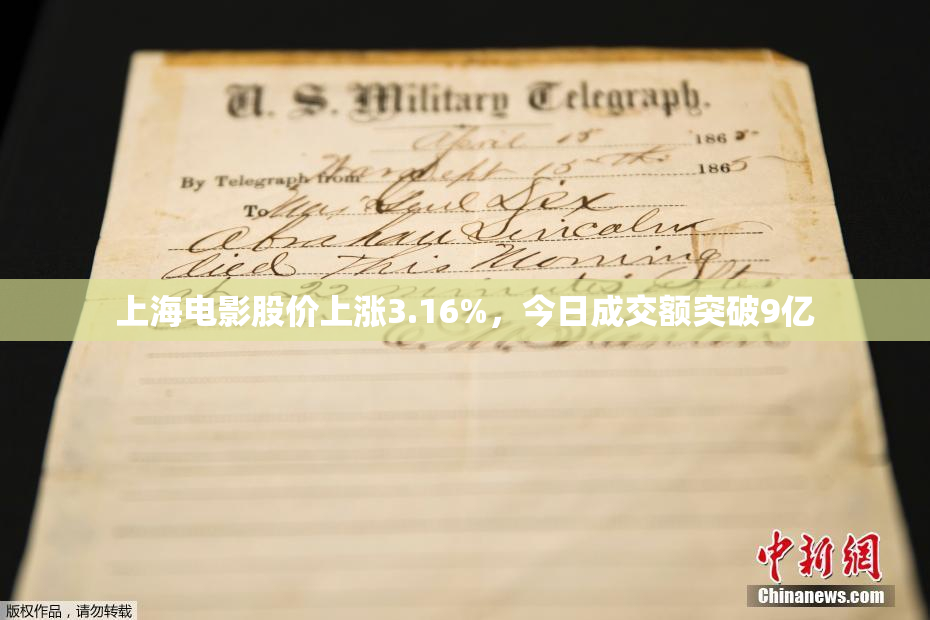 U. S. Military Telegraph.
April 15 1865
By Telegraph from War Dept 15th 1865
To Maj Genl Dix
Abraham Lincoln
died This Morning
at 22 minutes after
上海电影股价上涨3.16%，今日成交额突破9亿
E. M. Stanton
中新网
Chinanews.com
版权作品，请勿转载